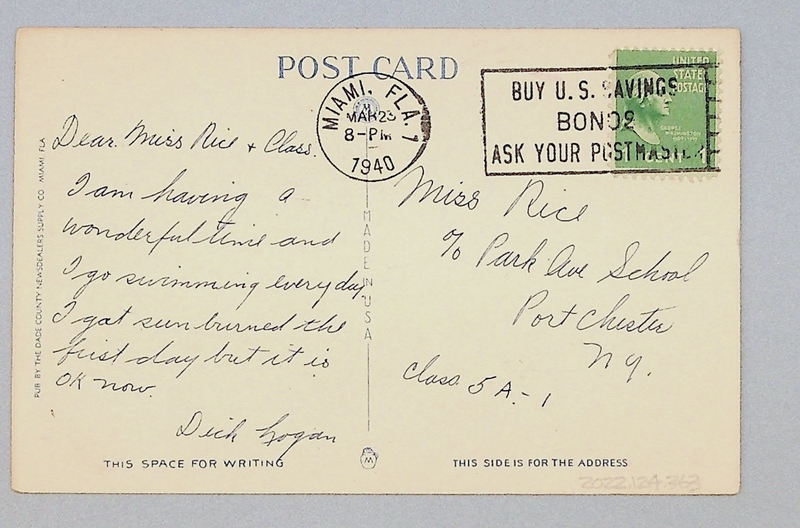 POST CARD
MIAMI, FLA. 1
MAR 23
8-PM
1940
BUY U.S. SAVINGS
BONDS
ASK YOUR POSTMASTER
UNITED
STATES
POSTAGE
GEORGE
WASHINGTON
1¢
Dear Miss Rice + Class.
I am having a
wonderful time and
I go swimming everyday.
I got sun burned the
first day but it is
OK now.
Dick Logan
Miss Rice
c/o Park Ave School
Port Chester
N.Y.
Class 5A-1
PUB BY THE DADE COUNTY NEWSDEALERS SUPPLY CO MIAMI, FLA
MADE IN USA
THIS SPACE FOR WRITING
THIS SIDE IS FOR THE ADDRESS
2022.124.363